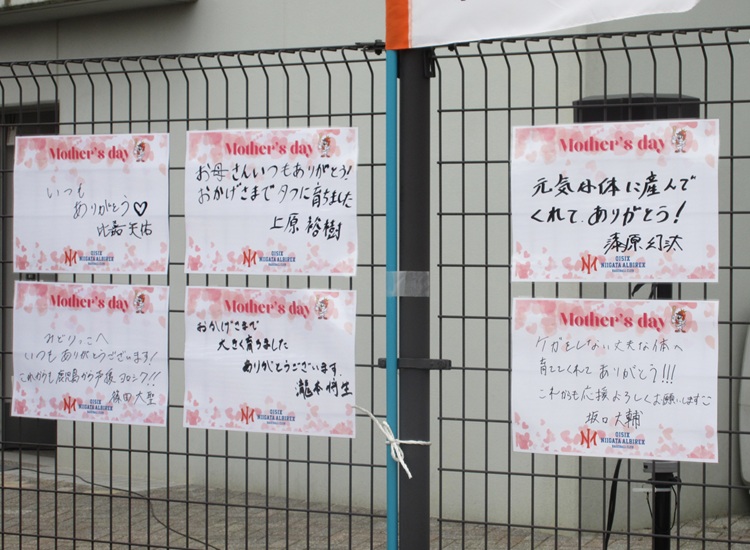 Mother's day
いつも
ありがとう♡
比嘉天佑
OISIX
NIIGATA ALBIREX
BASEBALL CLUB
Mother's day
お母さんいつもありがとう!
おかげさまでタフに育ちました
上原裕樹
OISIX
NIIGATA ALBIREX
BASEBALL CLUB
Mother's day
元気な体に産んで
くれて、ありがとう!
漆原幻汰
OISIX
NIIGATA ALBIREX
BASEBALL CLUB
Mother's day
みどりっこへ
いつもありがとうございます!
これからも鹿児島から声援ヨロシク!!
篠田大聖
OISIX
NIIGATA ALBIREX
BASEBALL CLUB
Mother's day
おかげさまで
大きく育ちました
ありがとうございます.
瀧本将生
OISIX
NIIGATA ALBIREX
BASEBALL CLUB
Mother's day
ケガをしない丈夫な体へ
育ててくれて ありがとう!!!
これからも応援よろしくお願いします
坂口大輔
OISIX
NIIGATA ALBIREX
BASEBALL CLUB